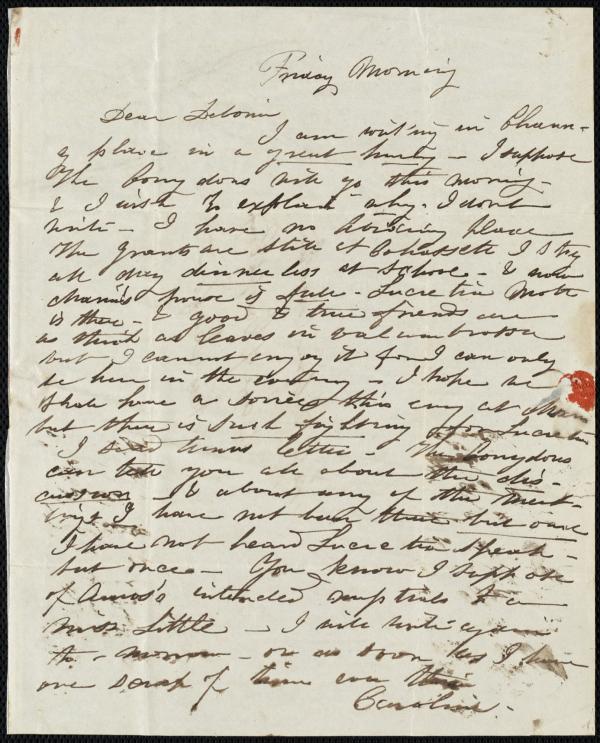 Friday Morning
Dear Debora
I am writing in Chaun-
y place in a great hurry - I suppose
the Congdons will go this morning -
& I wish to explain why I dont
write - I have no abiding place
The Grants are still at Cohassett I stay
all day dinnerless at school - & now
Maria's house is full - Lucretia Mott
is there - & good & true friends are
as thick as leaves in valambrosa
but I cannot enjoy it for I can only
be here in the evening - I hope we
shall have a soiree this eng at
but there is such fighting for Lucretia
I send letter - The Congdons
can tell you all about the dis-
cussion - & about any of the meet-
ings I have not been there but once
I have not heard Lucretia speak -
but once - You know I supose
of Amos's intended nuptials to a
Miss Little - I will write again
to-morrow - or as soon as I have
one scrap of time ever thine
Caroline.